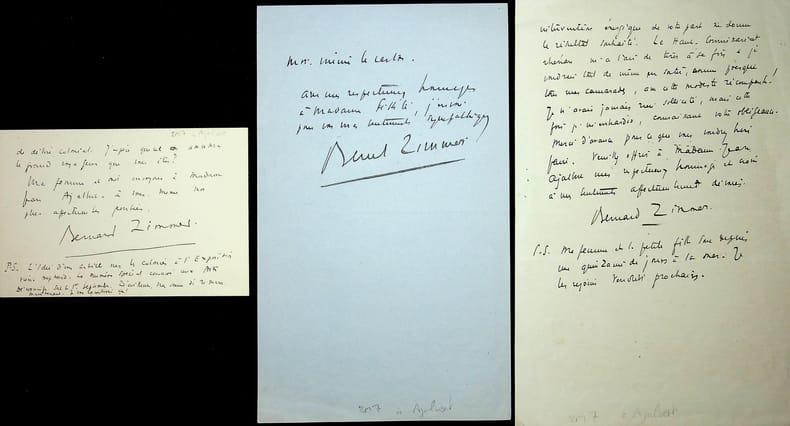 2017 à Ajalbert
de délire colonial.
le grand voyageur que vous êtes ?
Ma femme et moi envoyons à Madame
Jean Ajalbert, à vous même nos
plus affectueuses pensées.
Bernard Zimmer.
P.S. L'idée d'un article sur les colonies à l'Exposition
numéro spécial consacré aux Arts
1er Septembre.
maintenant.
avec mes respectueux hommages
à Madame
pour vos mes sentiments sympathiques
Bernard Zimmer
2017 à Ajalbert
intervention énergique de votre part ne donne
le résultat souhaité. Le Haut-Commissariat
rhénan m'a l'air de tirer à sa fin et je
voudrais tout de même en sortir, comme presque
tous mes camarades, avec cette modeste récompense !
Je n'avais jamais rien sollicité, mais cette
fois je m'enhardis, connaissant votre obligeance.
Merci d'avance pour ce que vous voudrez bien
faire. Veuillez offrir à Madame Jean
Ajalbert mes respectueux hommages et croire
à mes sentiments affectueusement dévoués.
Bernard Zimmer.
P.S. Ma femme et la petite fille sont depuis
une quinzaine de jours à la mer. Je
les rejoins Vendredi prochain.
2017 à Ajalbert